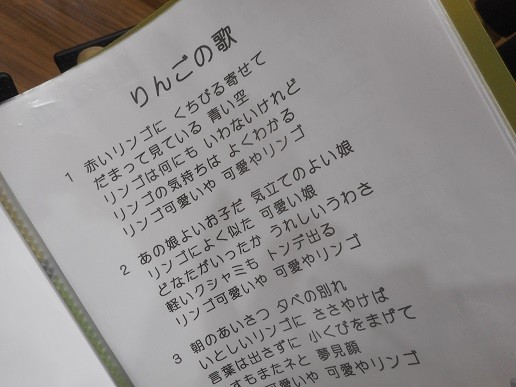 りんごの歌
1 赤いリンゴに くちびる寄せて
だまって見ている 青い空
リンゴは何にも いわないけれど
リンゴの気持ちは よくわかる
リンゴ可愛いや 可愛やリンゴ
2 あの娘よいお子だ 気立てのよい娘
リンゴによく似た 可愛い娘
どなたがいったか うれしいうわさ
軽いクシャミも トンデ出る
リンゴ可愛いや 可愛やリンゴ
3 朝のあいさつ 夕べの別れ
いとしいリンゴに ささやけば
言葉は出さずに 小くびをまげて
すもまたネと 夢見顔
可愛いや 可愛やリンゴ